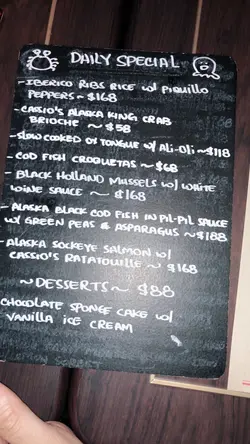 DAILY SPECIAL
- IBERICO RIBS RICE W/ PIQUILLO
PEPPERS ~ $168
- CASSIO'S ALASKA KING CRAB
BRIOCHE ~ $58
- SLOW COOKED OX TONGUE W/ ALI-OLI ~ $118
- COD FISH CROQUETAS ~ $68
- BLACK HOLLAND MUSSELS W/ WHITE
WINE SAUCE ~ $168
- ALASKA BLACK COD FISH IN PIL-PIL SAUCE
W/ GREEN PEAS & ASPARAGUS ~ $188
- ALASKA SOCKEYE SALMON W/
CASSIO'S RATATOUILLE ~ $168
~ DESSERTS ~ $88
CHOCOLATE SPONGE CAKE W/
VANILLA ICE CREAM